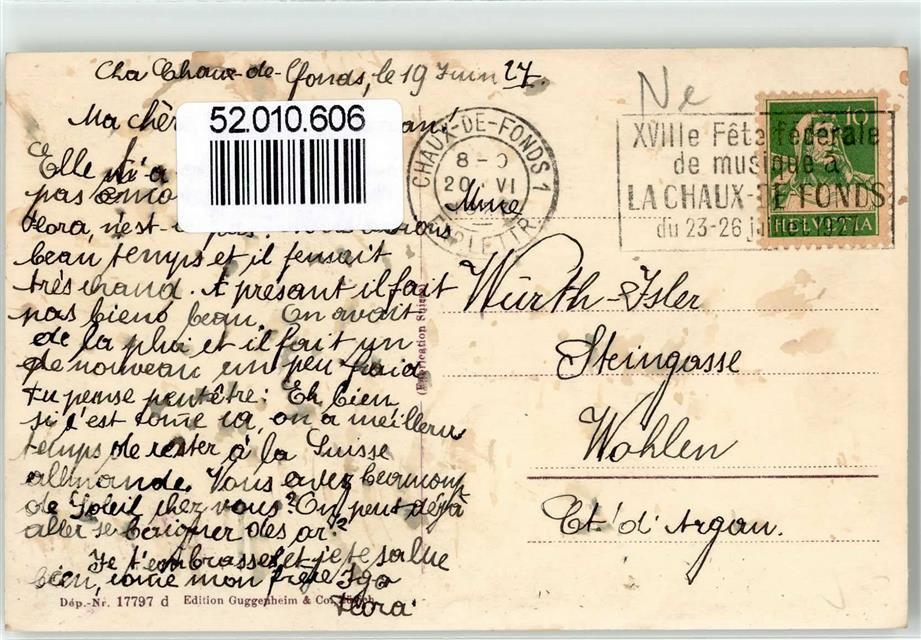 La Chaux-de-Fonds, le 19 Juin 27.
Ma chèr
52.010.606
Elle m'a
pas enco
Flora, n'est-
beau temps et il fensait
très chaud. A présant il fait
pas biens beau. On avait
de la plui et il fait un
de nouveau un peu froid
tu pense peutêtre: Eh bien
si c'est come ça, on a meilleru
temps de rester à la Suisse
allmande. Vous avez beaucoup
de Soleil chez vous? On peut déjà
aller se baigner dès or?
Je t'embrasse, et je te salue
bien, come mon frère
Flora
Dép.-Nr. 17797 d Edition Guggenheim & Co.
(Fabrication Suisse)
CHAUX-DE-FONDS 1
8-9
20. VI
Ne
XVIIIe Fête fédérale
de musique à
LA CHAUX-DE-FONDS
du 23-26 juin 1927
10
HELVETIA
Mme
Würth-Isler
Steingasse
Wohlen
Ct. d'Argau.